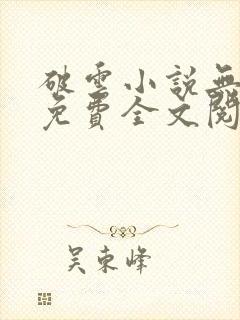 破雲小說無
免費全文閱
吴東峰